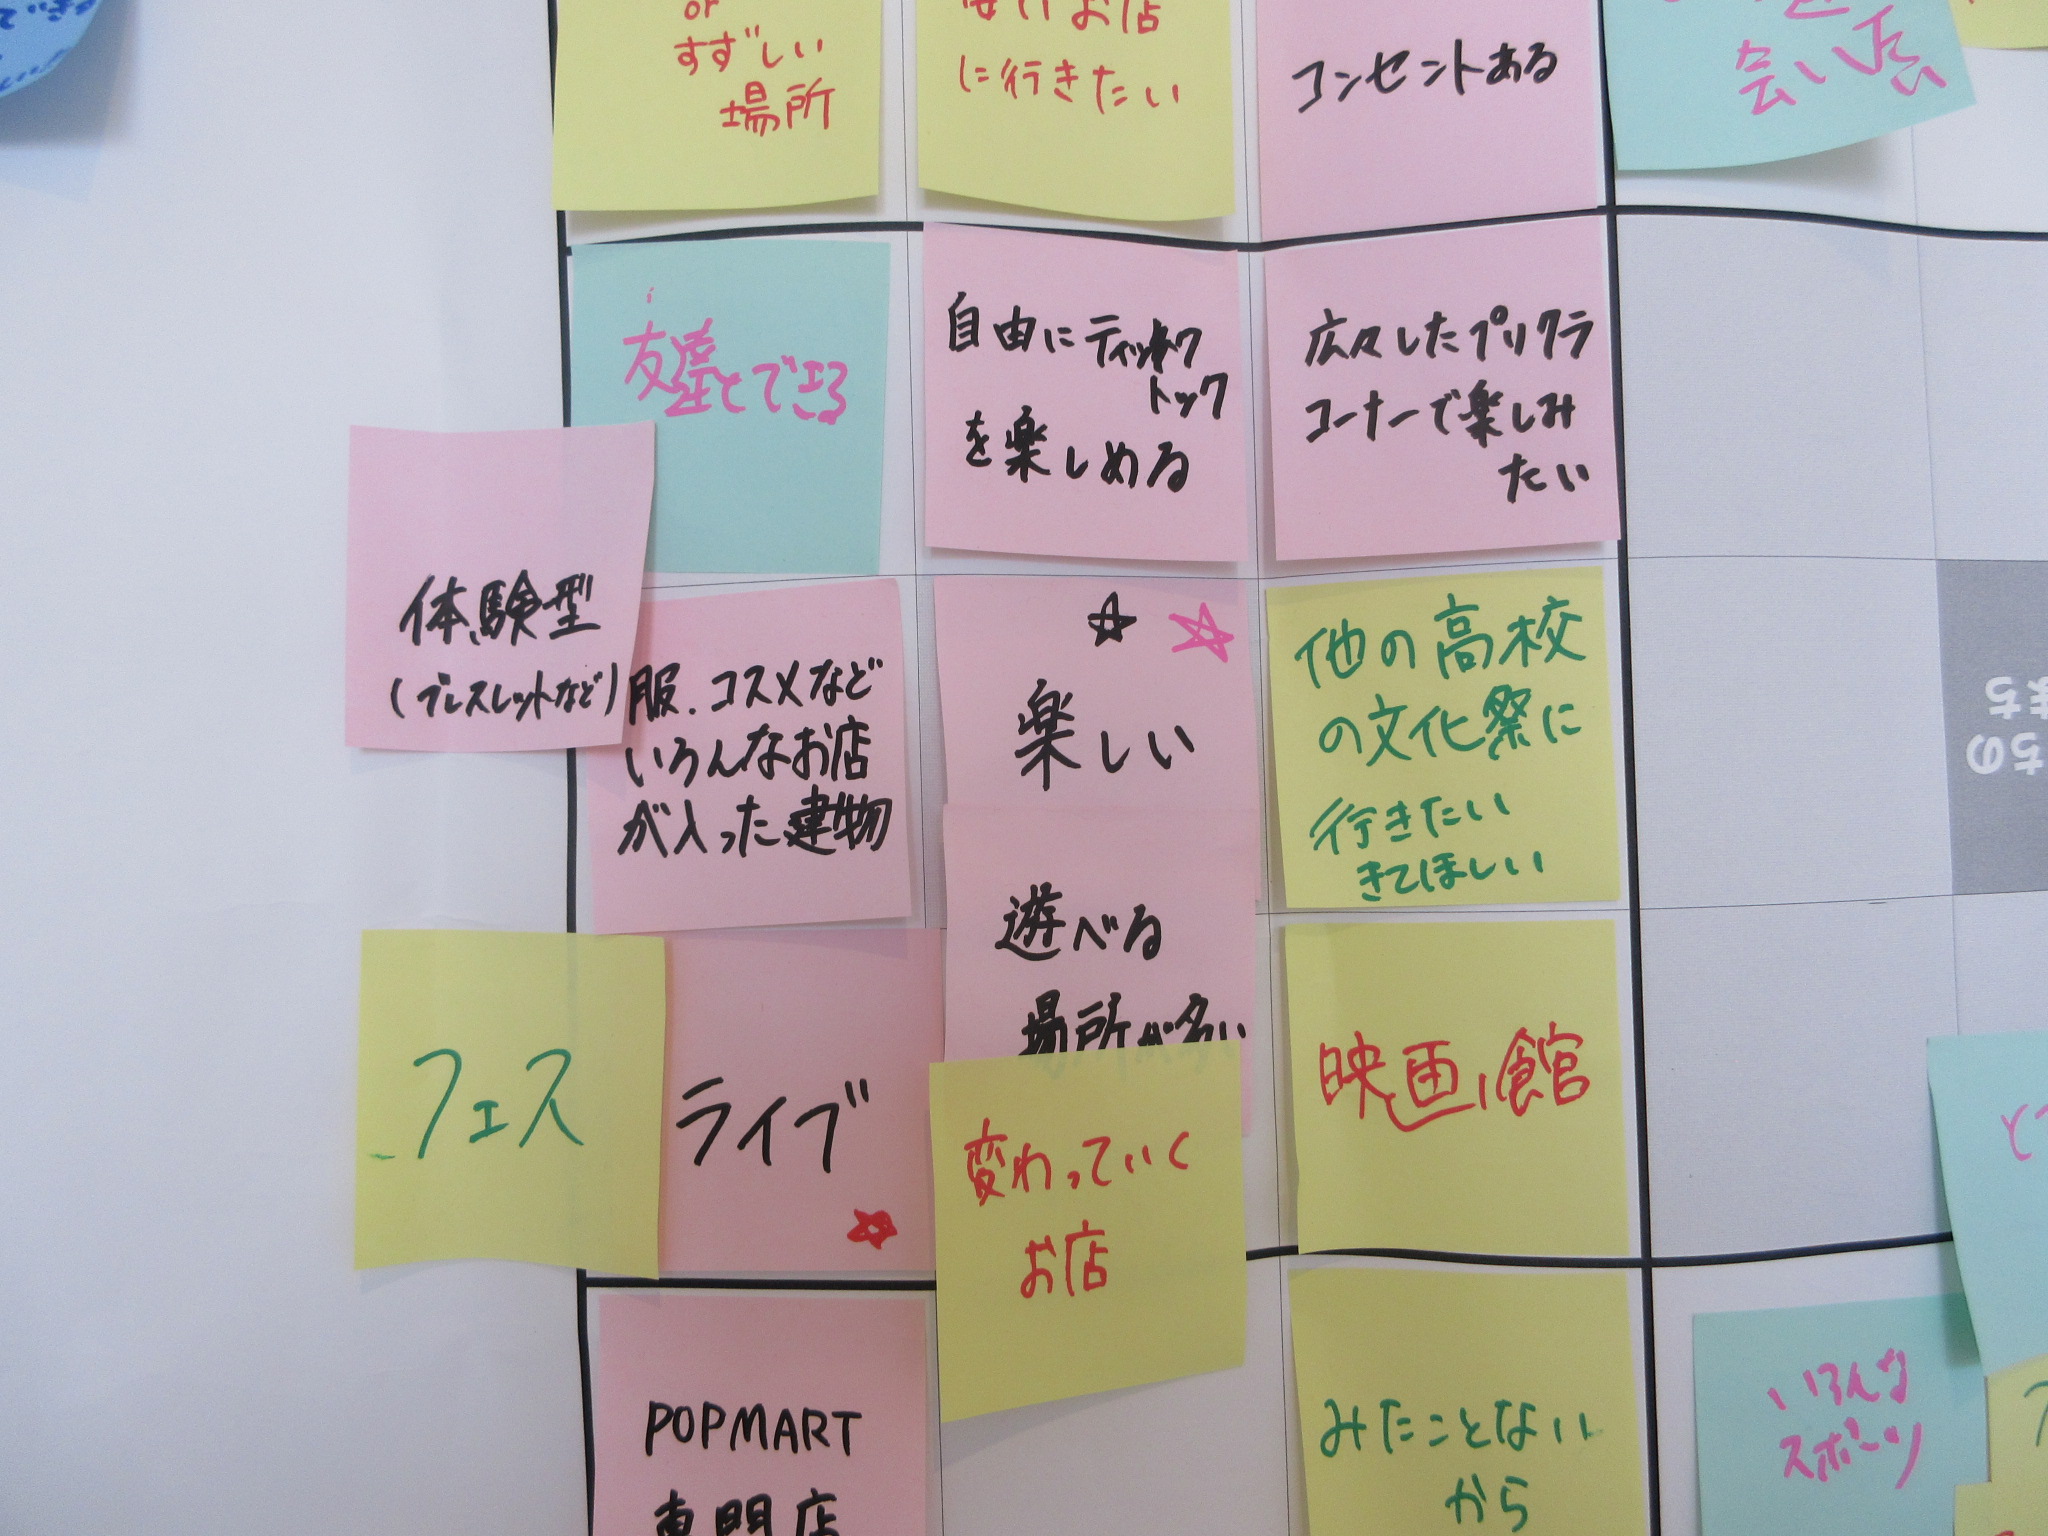 or
すずしい
場所
安いお店
に行きたい
コンセントある
会いたい
友達とできる
自由にティック
トック
を楽しめる
広々したプリクラ
コーナーで楽しみ
たい
体験型
(ブレスレットなど)
服、コスメなど
いろんなお店
が入った建物
楽しい
他の高校
の文化祭に
行きたい
きてほしい
遊べる
場所が多い
フェス
ライブ
変わっていく
お店
映画館
POPMART
専門店
みたことない
から
いろんな
スポーツ